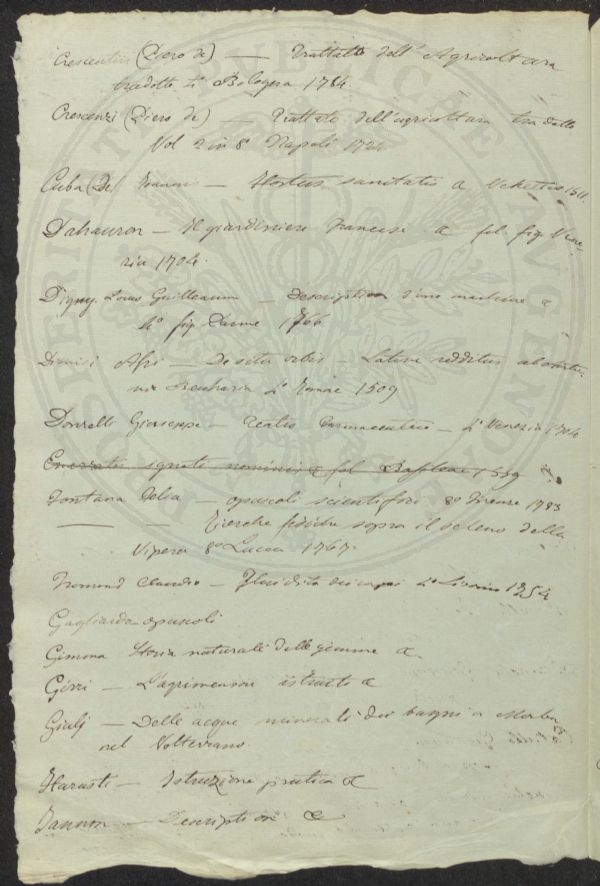 Crescentius (Piero de) — Trattato dell' Agricoltura
tradotto 4° Bologna 1784
Crescenzi (Piero de) — Trattato dell'agricoltura tradotto
Vol 2 in 8° Napoli 1724
Cuba (De) — Hortus sanitatis & 1511
Dahauron — Il giardiniere francese & fol fig Vene-
zia 1704.
Louis Guilleaume — Description d'une machine &
4° fig Parme 1766
Afri — De situ orbis — Latine redditus
4° 1509
Donzelli Giuseppe — Teatro farmaceutico — 4° Venezia 1704
nominis & fol Basileae 1559
Fontana Felice — opuscoli scientifici 8° Firenze 1783
— — Ricerche fisiche sopra il veleno della
Vipera 8° Lucca 1767.
Fromond Claudio — Fluidità dei corpi 4° Livorno 1754
Gagliardo opuscoli
Gimma Storia naturale delle gemme &
— L'agrimensore istruito &
Giulj — Delle acque minerali dei bagni a Morba
nel Volterrano
Harasti — Istruzione pratica &
— Description &